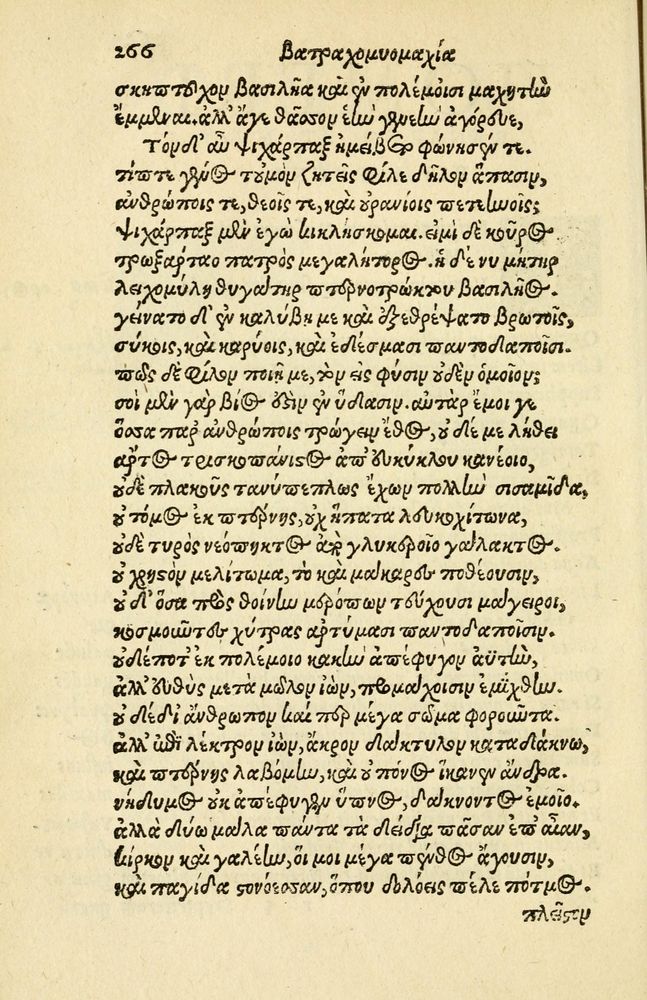 266 Βατραχομυομαχία
σκηπτοῦχον βασιλῆα καὶ ἐν πολέμοισι μαχητὴν
ἔμμεναι. ἀλλ' ἄγε θᾶσσον ἑὴν γενεὴν ἀγόρευε,
Τὸν δ' αὖ ψιχάρπαξ ἠμείβετο φώνησέν τε.
τίπτε γένος τοὐμὸν ζητεῖς φίλε δῆλον ἅπασιν,
ἀνθρώποις τε, θεοῖς τε, καὶ οὐρανίοις πετεηνοῖς;
ψιχάρπαξ μὲν ἐγὼ κικλήσκομαι. εἰμὶ δὲ κοῦρος
τρωξάρταο πατρὸς μεγαλήτορος. ἡ δέ νυ μήτηρ
λειχομύλη θυγάτηρ πτερνοτρώκτου βασιλῆος.
γείνατο δ' ἐν καλύβῃ με καὶ ἐξεθρέψατο βρωτοῖς,
σύκοις, καὶ καρύοις, καὶ ἐδέσμασι παντοδαποῖσι.
πῶς δὲ φίλον ποιῇ με, τὸν εἰς φύσιν οὐδὲν ὁμοῖον;
σοὶ μὲν γὰρ βίος ἐστὶν ἐν ὕδασιν. αὐτὰρ ἔμοι γε
ὅσσα παρ' ἀνθρώποις τρώγειν ἔθος, οὐδέ με λήθει
ἄρτος τρισκοπάνιστος ἀπ' εὐκύκλου κανέοιο,
οὐδὲ πλακοῦς τανύπεπλως ἔχων πολλὴν σισαμίδα,
οὐ τόμος ἐκ πτέρνης, οὐχ ἥπατα λευκοχίτωνα,
οὐδὲ τυρὸς νεόπηκτος ἀπὸ γλυκεροῖο γάλακτος.
οὐ χρηστὸν μελίτωμα, τὸ καὶ μάκαρες ποθέουσιν,
οὐδ' ὅσα πρὸς θοίνην μερόπων τεύχουσι μάγειροι,
κοσμοῦντες χύτρας ἀρτύμασι παντοδαποῖσιν.
οὐδέποτ' ἐκ πολέμοιο κακὴν ἀπέφυγον ἀϋτὴν,
ἀλλ' εὐθὺς μετὰ μῶλον ἰὼν, προμάχοισιν ἐμίχθην.
οὐ δέδι' ἄνθρωπον καί περ μέγα σῶμα φοροῦντα.
ἀλλ' ἐπὶ λέκτρον ἰὼν, ἄκρον δάκτυλον καταδάκνω,
καὶ πτέρνης λαβόμην, καὶ οὐ πόνος ἵκανεν ἄνδρα.
νήδυμος οὐκ ἀπέφυγεν ὕπνος, δάκνοντος ἐμοῖο.
ἀλλὰ δύω μάλα πάντα τὰ δείδια πᾶσαν ἐπ' αἶαν,
κίρκον καὶ γαλέην, οἵ μοι μέγα πένθος ἄγουσιν,
καὶ παγίδα στονόεσσαν, ὅπου δολόεις πέλε πότμος.
πλεῖστον